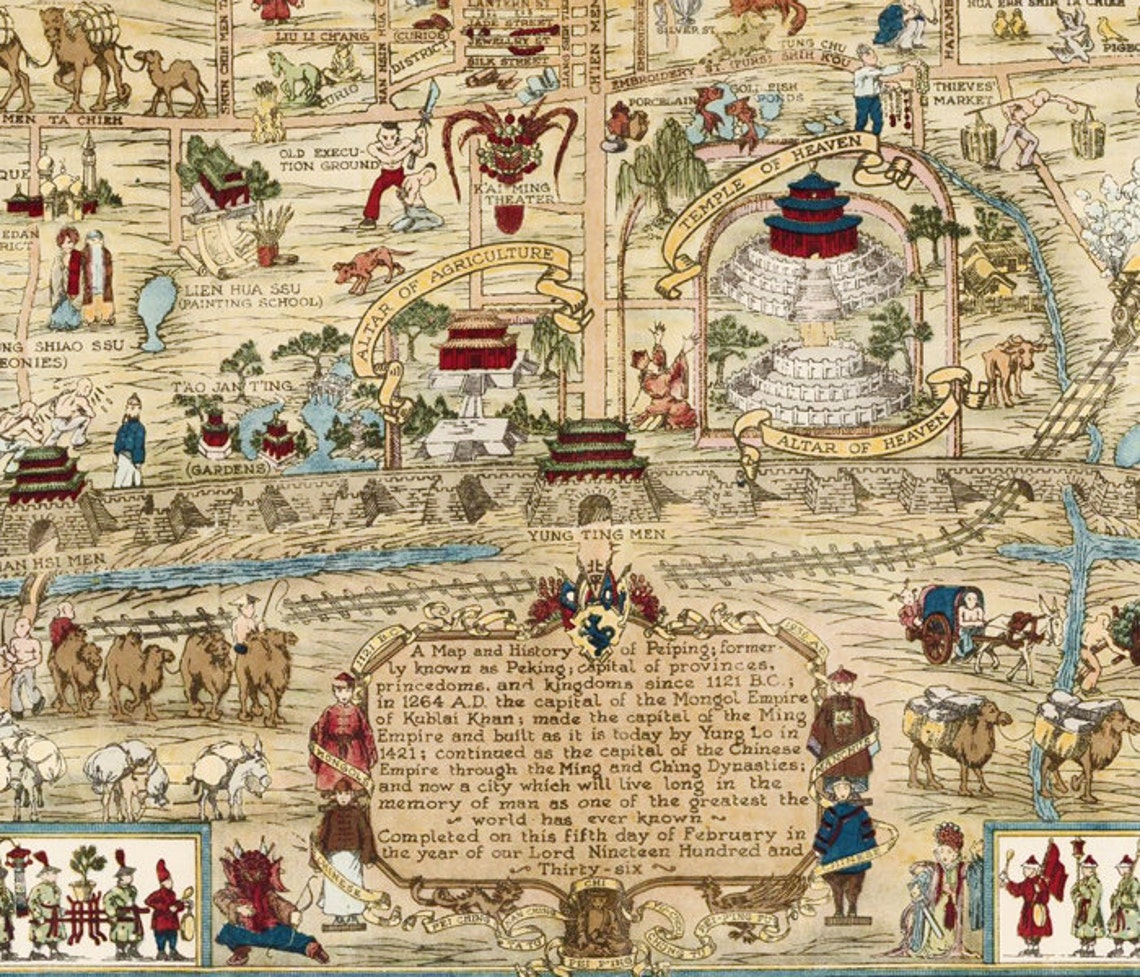 LANTERN ST
JADE STREET
JEWELLRY ST
SILK STREET
LIU LI CH'ANG
(CURIOS)
DISTRICT
CURIO
CH'IEN MEN
SILVER ST
TUNG CHU
SHIH K'OU
EMBROIDERY ST (FURS)
HUA ERR SHIH TA CHIEH
MEN TA CHIEH
PORCELAIN
GOLD FISH
PONDS
THIEVES'
MARKET
OLD EXECU-
TION GROUND
K'AI MING
THEATER
TEMPLE OF HEAVEN
ALTAR OF AGRICULTURE
LIEN HUA SSU
(PAINTING SCHOOL)
T'AO JAN T'ING
(GARDENS)
ALTAR OF HEAVEN
YUNG TING MEN
1121 B.C.
1936 A.D.
A Map and History of Peiping; former-
ly known as Peking; capital of provinces,
princedoms, and kingdoms since 1121 B.C.;
in 1264 A.D. the capital of the Mongol Empire
of Kublai Khan; made the capital of the Ming
Empire and built as it is today by Yung Lo in
1421; continued as the capital of the Chinese
Empire through the Ming and Ch'ing Dynasties;
and now a city which will live long in the
memory of man as one of the greatest the
world has ever known
Completed on this fifth day of February in
the year of our Lord Nineteen Hundred and
Thirty-six
MONGOLS
MANCHUS
CHINESE
CHINESE
CHI
PEI CHING
TA TU
CHUNG TU
PEI-P'ING FU
PEI P'ING